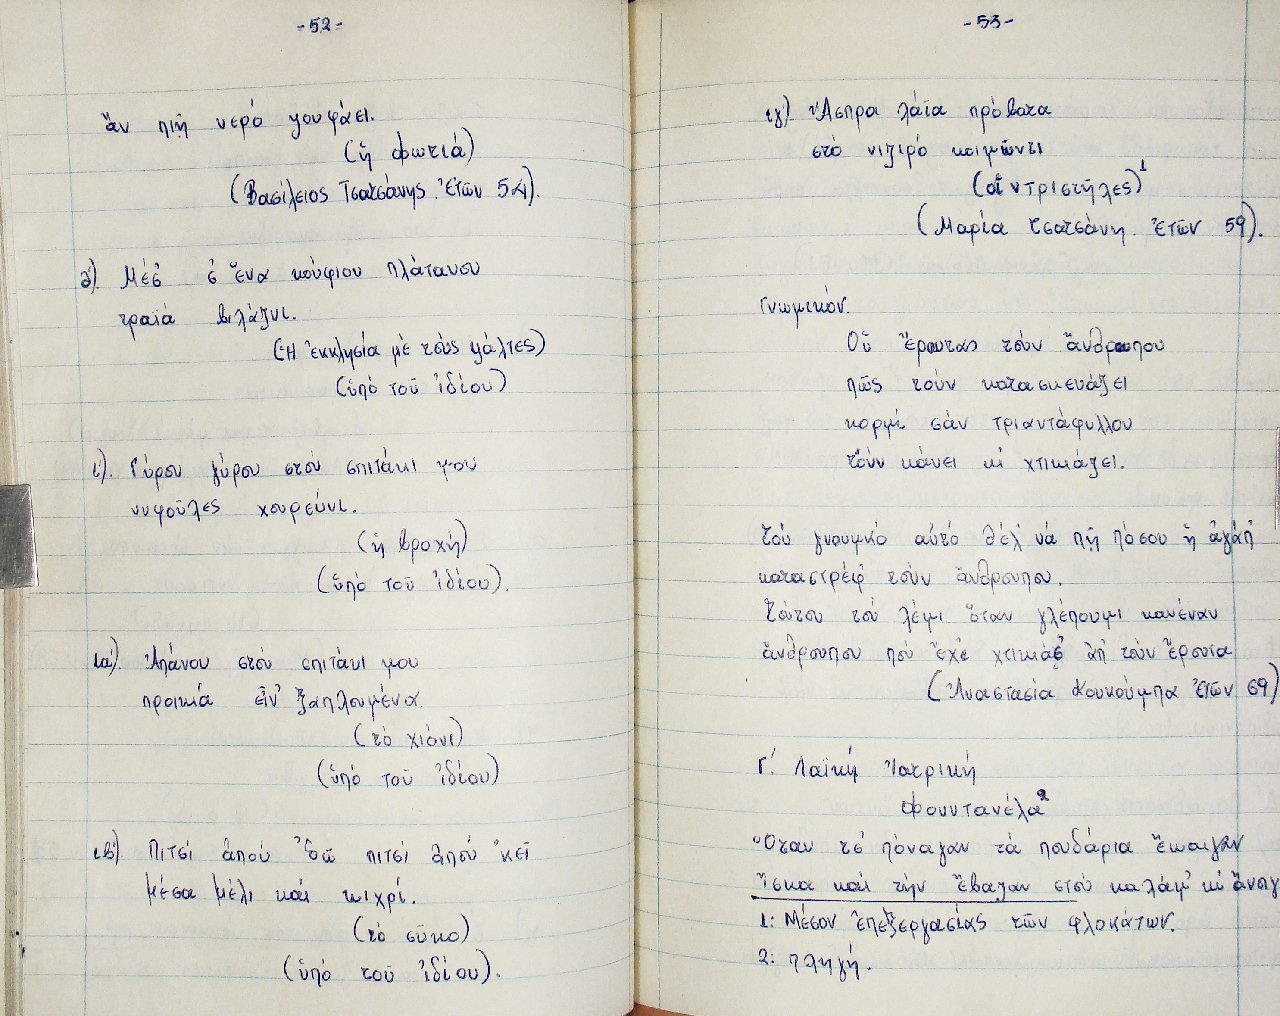 -52-
ἄν πιῇ νερό ψουφάει.
(ἡ φωτιά)
(Βασίλειος Τσατσάνης. Ἐτῶν 54).
θ). Μέσ' σ' ἕνα κούφιου πλάτανου
τραϊά βιλάζνι.
(Ἡ ἐκκλησία μὲ τοὺς ψάλτες)
(ὑπό τοῦ ἰδίου)
ι). Γύρου γύρου στού σπιτάκι μου
νυφοῦλες χουρεύνι.
(ἡ βροχή)
(ὑπό τοῦ ἰδίου).
ια). Ἀπάνου στού σπιτάκι μου
προικιά εἶν' ξαπλουμένα.
(τό χιόνι)
(ὑπό τοῦ ἰδίου)
ιβ). Πιτσί ἀπού 'δῶ πιτσί ἀπού 'κεῖ
μέσα μέλι καί κιχρί.
(τό σῦκο)
(ὑπό τοῦ ἰδίου).
-53-
ιγ) Ἄσπρα λάϊα πρόβατα
στό νιζιρό κοιμῶντι
(οἱ ντριστῆλες)1
(Μαρία Τσατσάνη. Ἐτῶν 59).
Γνωμικόν.
Οὑ ἔρωτας τοὺν ἄνθρωπου
πῶς τοὺν κατασκευάζει
κορμί σάν τριαντάφυλλου
τοὺν κάνει κι χτικιάζει.
Τού γνουμκό αὐτό θέλ' νά πῇ πόσου ἡ ἀγάπ'
καταστρέφ' τοὺν ἄνθρουπου.
Τούτου τού λέμι ὅταν γλέπουμι κανέναν
ἄνθρουπου πού ἔχ' χτικιάσ' ἀπ' τοὺν ἔρουτα
(Ἀναστασία Κουκούμπα Ἐτῶν 69)
Γ΄. Λαϊκή Ἰατρική
Φουντανέλα2
Ὅταν τς πόναγαν τά πουδάρια ἔκαιγαν
ἴσκα καί τήν ἔβαζαν στού καλάμ' κι ἄνοιγ
1: Μέσον ἐπεξεργασίας τῶν φλοκάτων.
2: πληγή.